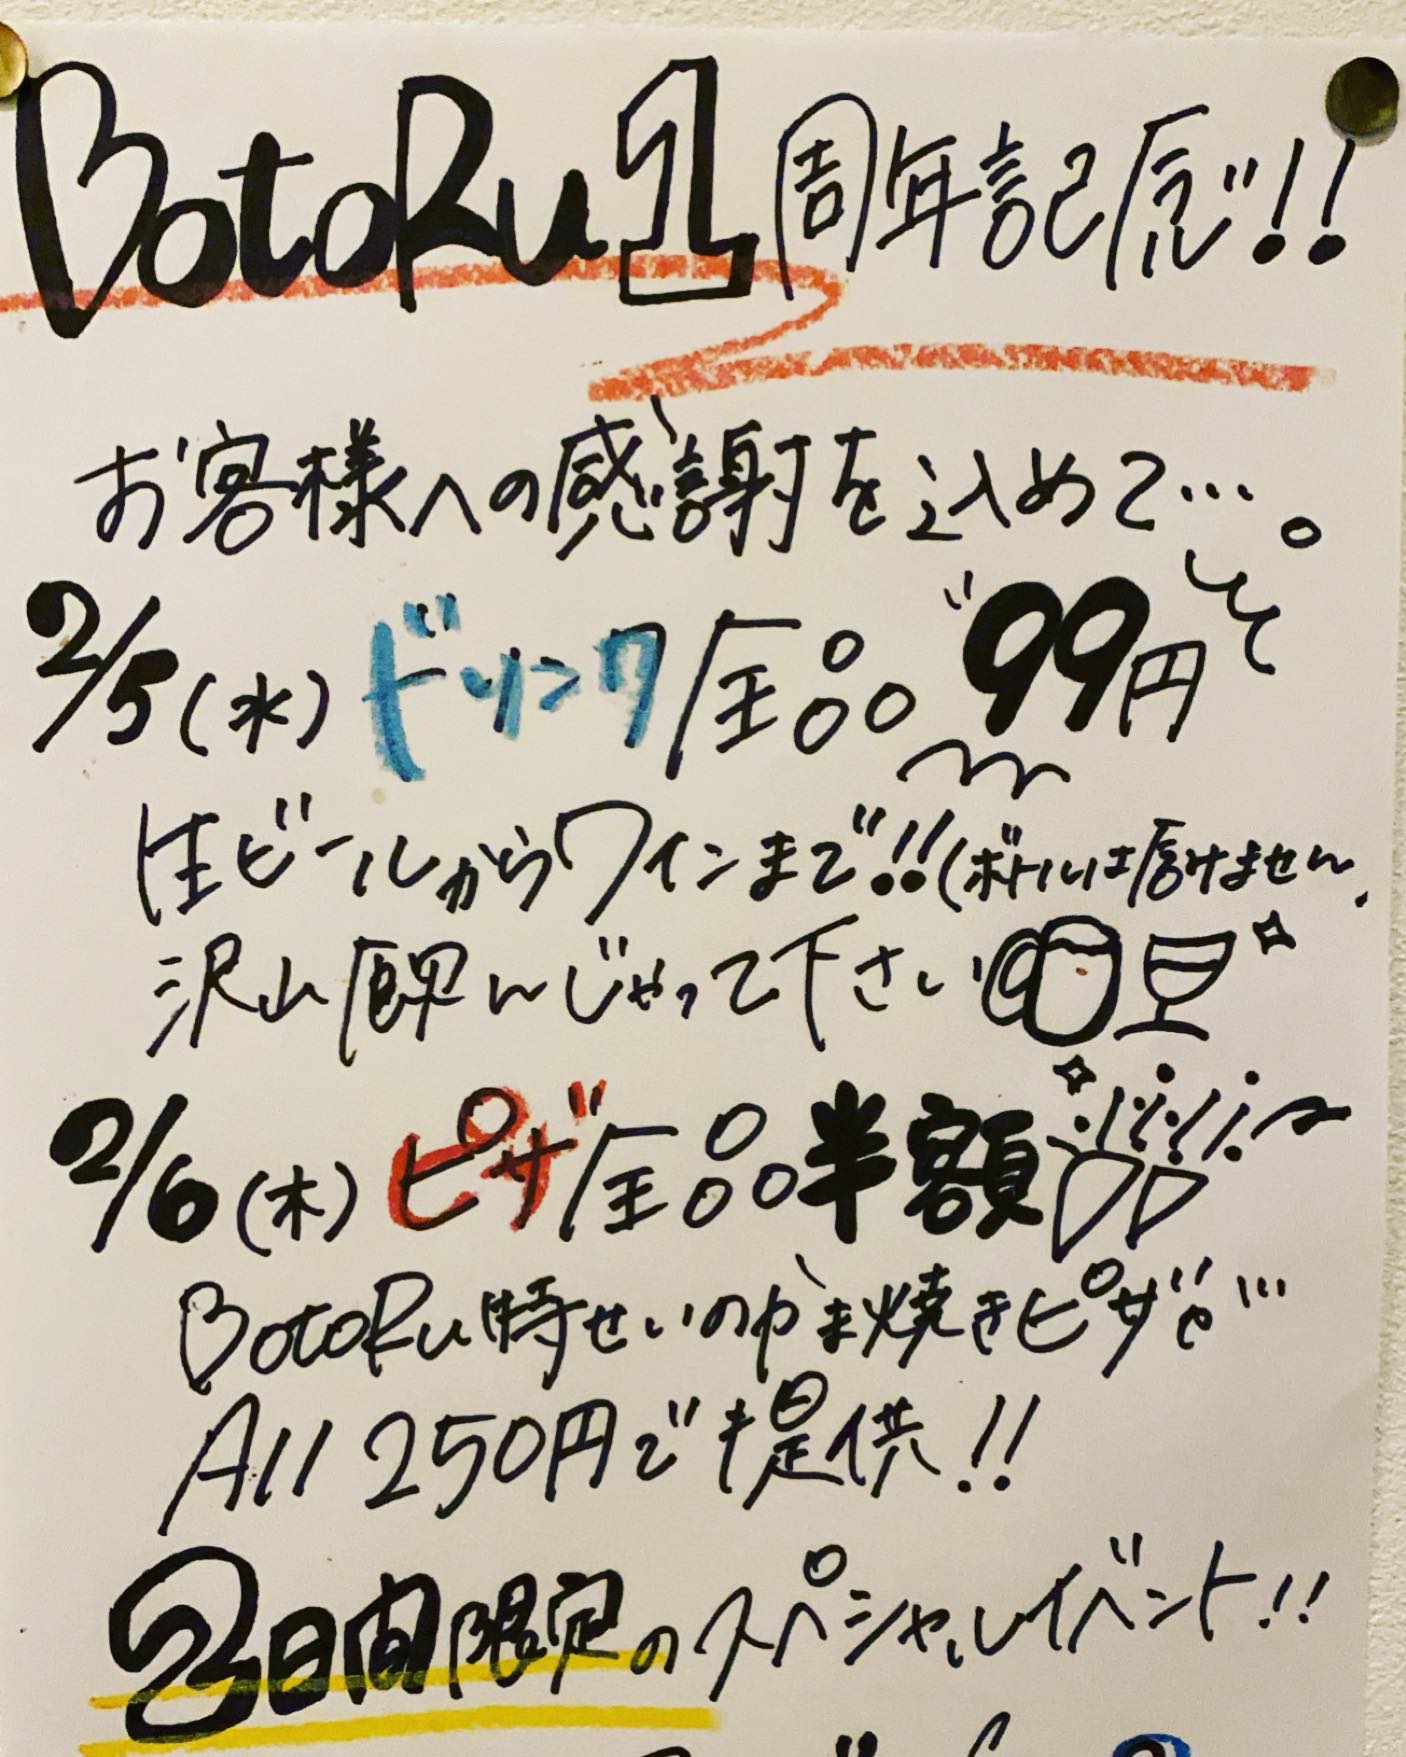 BotoRu 1周年記念!!
お客様への感謝を込めて…。
2/5(水) ドリンク全品 "99円
生ビールからワインまで!!(ボトルは除けません.
沢山飲んじゃって下さい
2/6(木) ピザ全品半額
BotoRu特せいのかま焼きピザを…
All 250円で提供!!
2日間限定のスペシャルイベント!!